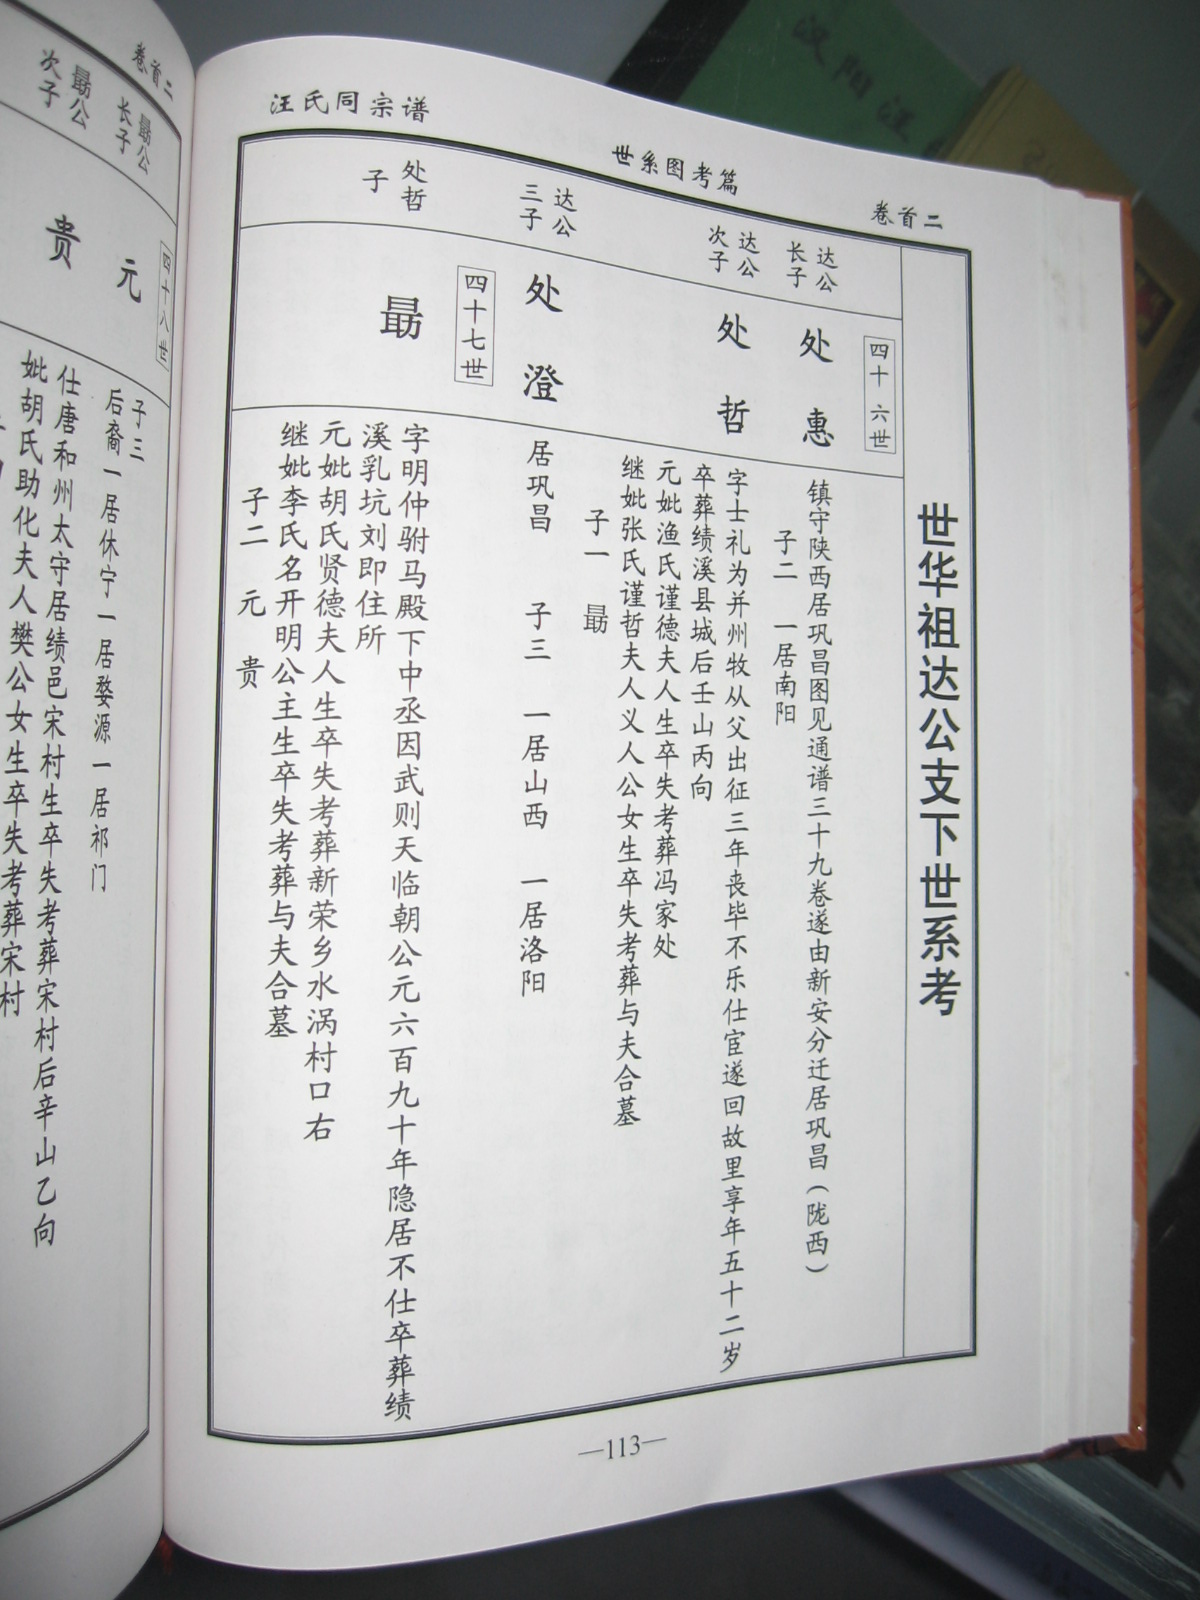 汪氏同宗谱
世系图考篇
卷首二
世华祖达公支下世系考
四十六世
达公
长子
处惠
镇守陕西居巩昌图见通谱三十九卷遂由新安分迁居巩昌(陇西)
子二 一居南阳
达公
次子
处哲
字士礼为并州牧从父出征三年丧毕不乐仕宦遂回故里享年五十二岁
卒葬绩溪县城后壬山丙向
元妣渔氏谨德夫人生卒失考葬冯家处
继妣张氏谨哲夫人义人公女生卒失考葬与夫合墓
子一 勗
达公
三子
处澄
居巩昌 子三 一居山西 一居洛阳
四十七世
处哲
子
勗
字明仲驸马殿下中丞因武则天临朝公元六百九十年隐居不仕卒葬绩
溪乳坑刘即住所
元妣胡氏贤德夫人生卒失考葬新荣乡水涡村口右
继妣李氏名开明公主生卒失考葬与夫合墓
子二 元 贵
—113—
卷首二
四十八世
勗公
长子
元
子三
后裔一居休宁一居婺源一居祁门
勗公
次子
贵
仕唐和州太守居绩邑宋村生卒失考葬宋村后辛山乙向
妣胡氏助化夫人樊公女生卒失考葬宋村
汉阳汪